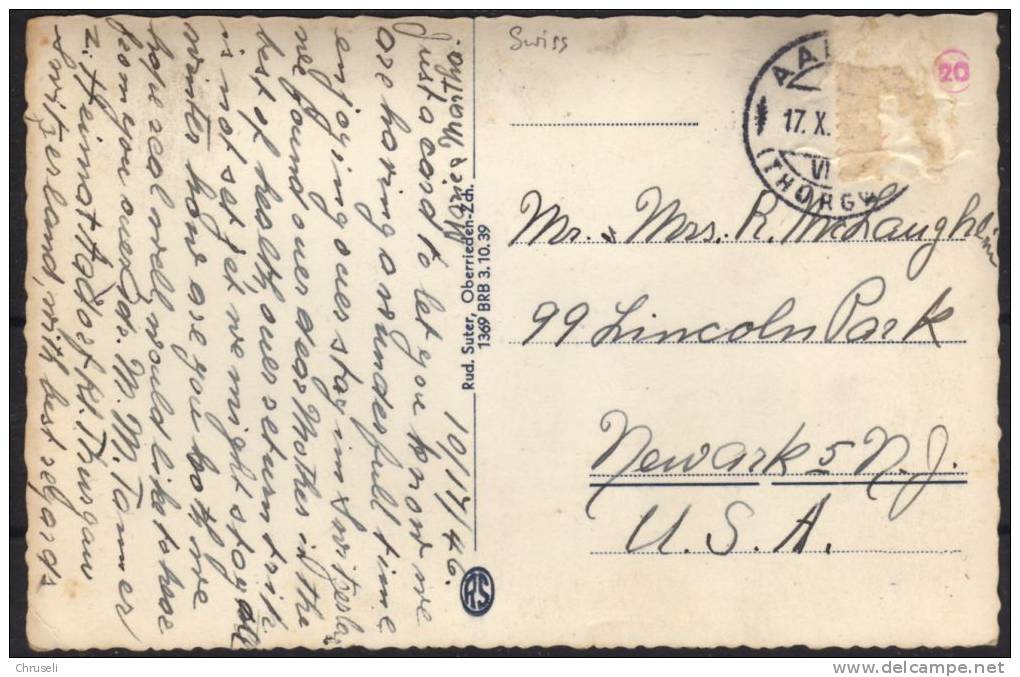 Swiss
20
AA
17. X.
VI
(THURG
10/17/46.
Just a card to let you know we
are having a wunderfull time
enjoying our stay in Switzerla
we found our dear Mother in the
best of health, our return trip
is not set jet, we might stay all
winter, how are you both we
hope real well, would like to hear
from you our adr. M. M. Tanner
z. Heimat Aadorf Kt. Thurgau
Switzerland, with best regards
Marie & Martha.
Rud. Suter, Oberrieden-Zch.
1369 BRB 3.10.39
RS
Mr. & Mrs. R. McLaughlin
99 Lincoln Park
Newark 5 N. J.
U. S. A.
Chruseli
delcampe.net